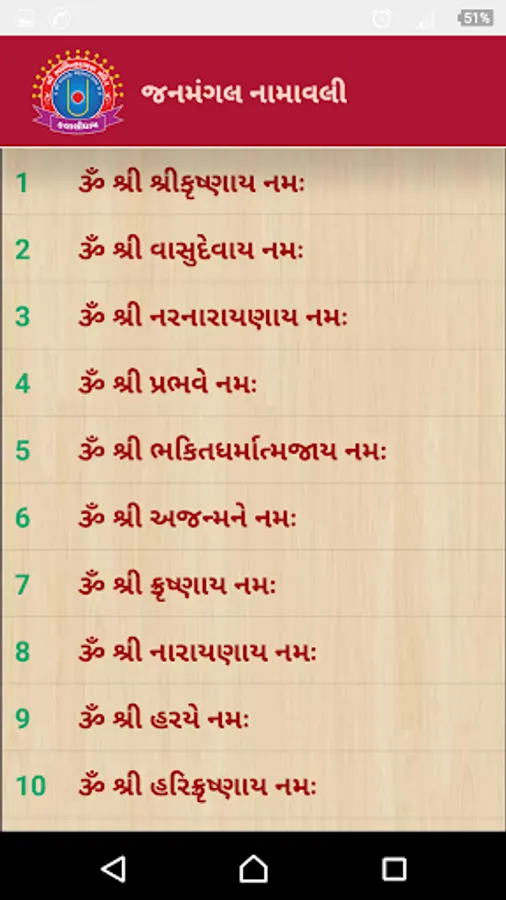 51%
જનમંગલ નામાવલી
1 ૐ શ્રી શ્રીકૃષ્ણાય નમઃ
2 ૐ શ્રી વાસુદેવાય નમઃ
3 ૐ શ્રી નરનારાયણાય નમઃ
4 ૐ શ્રી પ્રભવે નમઃ
5 ૐ શ્રી ભકિતધર્માત્મજાય નમઃ
6 ૐ શ્રી અજન્મને નમઃ
7 ૐ શ્રી ક્રૃષ્ણાય નમઃ
8 ૐ શ્રી નારાયણાય નમઃ
9 ૐ શ્રી હરયે નમઃ
10 ૐ શ્રી હરિક્રૃષ્ણાય નમઃ